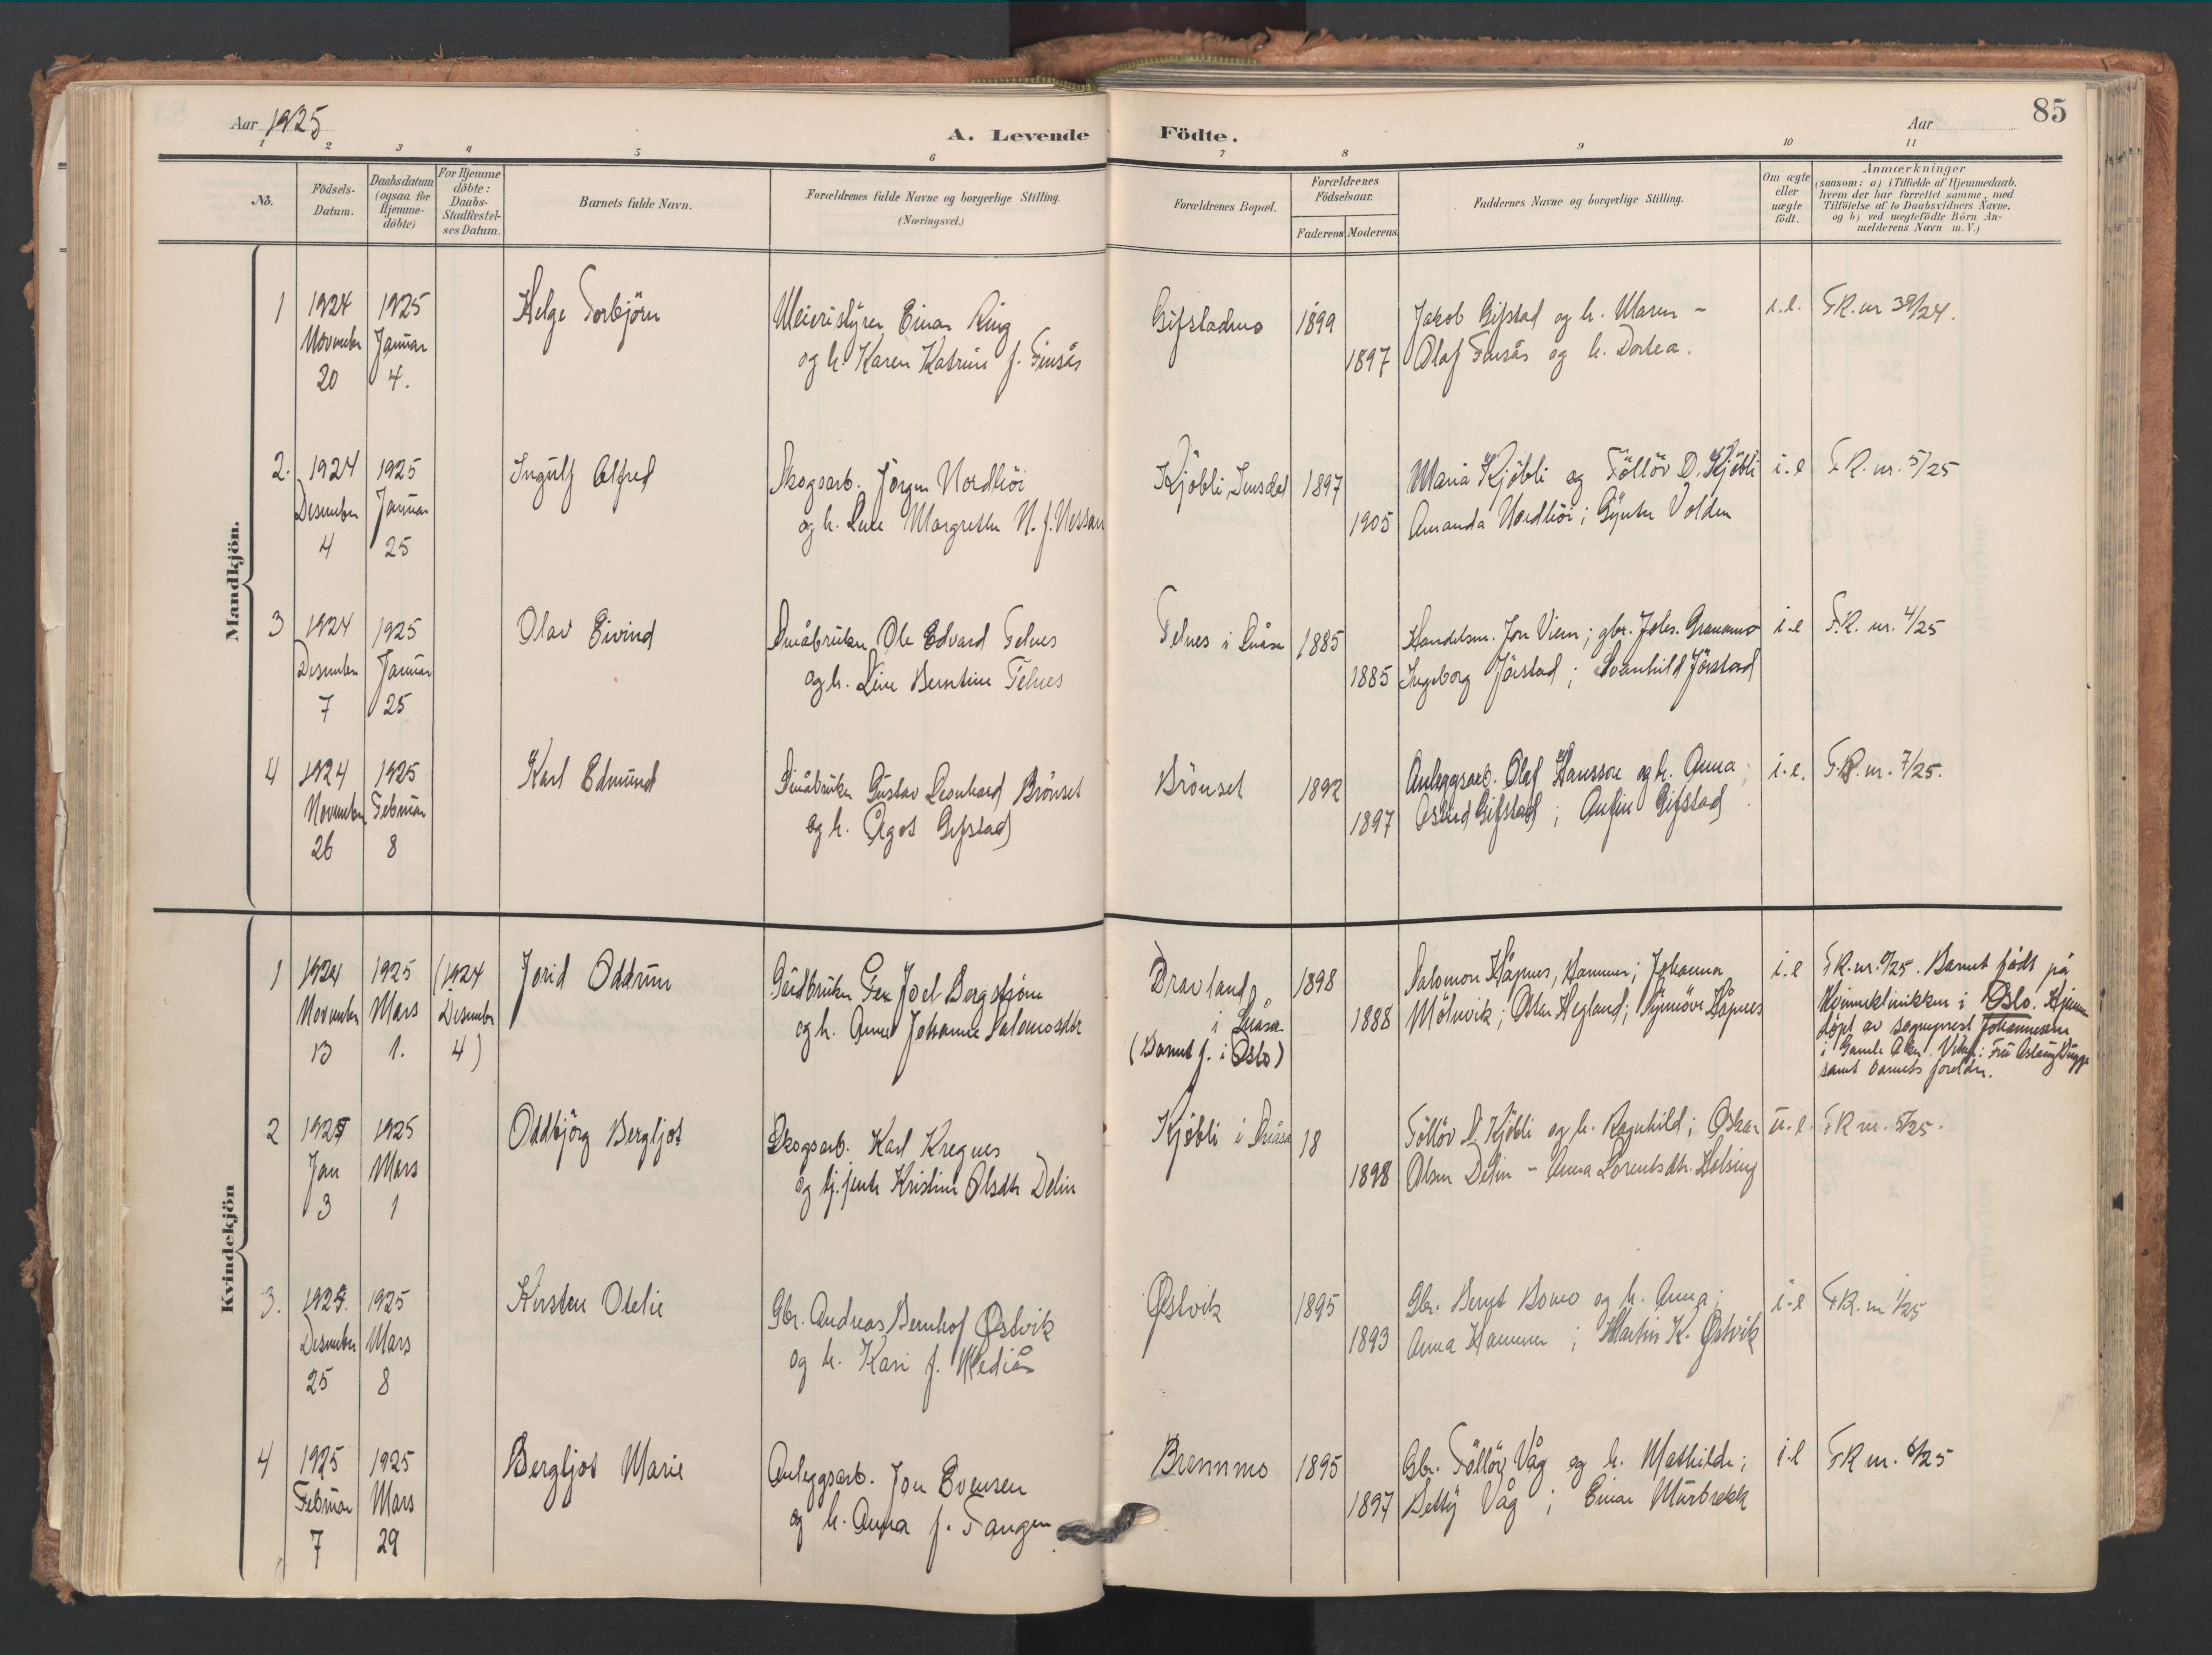 Aar 1925
A. Levende Födte.
Aar
85
1 2 3 4 5 6 7 8 9 10 11
No.
Födsels-Datum.
Daabsdatum (ogsaa for Hjemme-döbte)
For Hjemme döbte: Daabs-Stadfæstel-ses Datum.
Barnets fulde Navn.
Forældrenes fulde Navne og borgerlige Stilling. (Næringsvei.)
Forældrenes Bopæl.
Forældrenes Födselsaar.
Faderens Moderens
Faddernes Navne og borgerlige Stilling.
Om ægte eller uægte födt.
Anmærkninger
(saasom: a) i Tilfælde af Hjemmedaab. hvem der har forrettet samme, med Tilföielse af to Daabsvidners Navne. og b) ved uægtefödte Börn An-melderens Navn m. V.)
Mandkjön.
1 1924 1925 Helge Torbjörn Meieristyrer Einar Ring Gifstadmo 1899 Jakob Gifstad og h. Maren - i.e. F.R. nr 39/24.
November Januar og h. Karen Katrine f. Finsås 1897 Olaf Finsås og h. Dortea.
20 4.
2. 1924 1925 Ingulf Alfred Skogsarb. Jörgen Nordhöi Kjöbli, 1897 Maria Kjöbli og Töllöv D. Kjöbli i.e F.R. nr. 5/25
Desember Januar og h. Margrethe N. f. 1905 Amanda Nordhöi; Volden
4 25
3 1924 1925 Olav Eivind Småbruker Ole Edvard Felnes Felnes i Snåsa 1885 Handelsm. Jon Viem; gbr. Johs. i.e F.R. nr. 4/25
Desember Januar og h. Line Berntine Felnes 1885 Ingeborg Jörstad; Svanhild Jörstad
7 25
4 1924 1925 Karl Edmund Småbruker Gustav Leonhard Brönset Brönset 1892 Anleggsarb. Olaf Hansson og h. Anna; i.e. F.R. nr. 7/25.
November Februar og h. Ågot Gifstad 1897 Gifstad; Anfin Gifstad
26 8
Kvindekjön
1 1924 1925 (1924 Jorid Oddrun Gårdbruker Joel Bergstjörn Dravland, 1898 Salomon Håpnes, Hammer; Johanna i.e F.R. nr. /25. Barnet född på
November Mars Desember og h. Anna Johanna Salomosdtr i Snåsa 1888 Mölnvik; Hegland; Synnöve Håpnes i Oslo. Hjemme
13 1. 4) (Barnet f. i Oslo) döpt av sogneprest Johannesen
i Gamle Aker. Vitner: Fru Aslaug
samt barnets foreldre.
2 1925 1925 Oddbjörg Bergljot Skogsarb. Karl Kregnes Kjöbli i Snåsa 18 Töllöv D. Kjöbli og h. Ragnhild; Oskar u.e. F.R nr. 5/25.
Jan Mars og tj.jente Kristine Olsdtr Delin 1898 Olsen Delin - Anna Lorentsdtr.
3 1
3. 1924. 1925 Kirsten Otelie Gbr. Andreas Bernhof Östvik Östvik 1895 Gbr. Bernt Bomo og h. Anna; i.e F.R. nr 1/25
Desember Mars og h. Kari f. Mediås 1893 Anna Hammer; Martin K. Östvik
25 8
4 1925 1925 Bergljot Marie Anleggsarb. Jon Evensen Bremmo 1895 Gbr. Töllöv Våg og h. Mathilde; i.e F.R nr. 6/25
Februar Mars og h. Anna f. Tangen 1897 Betty Våg; Einar Murbrekk
7 29